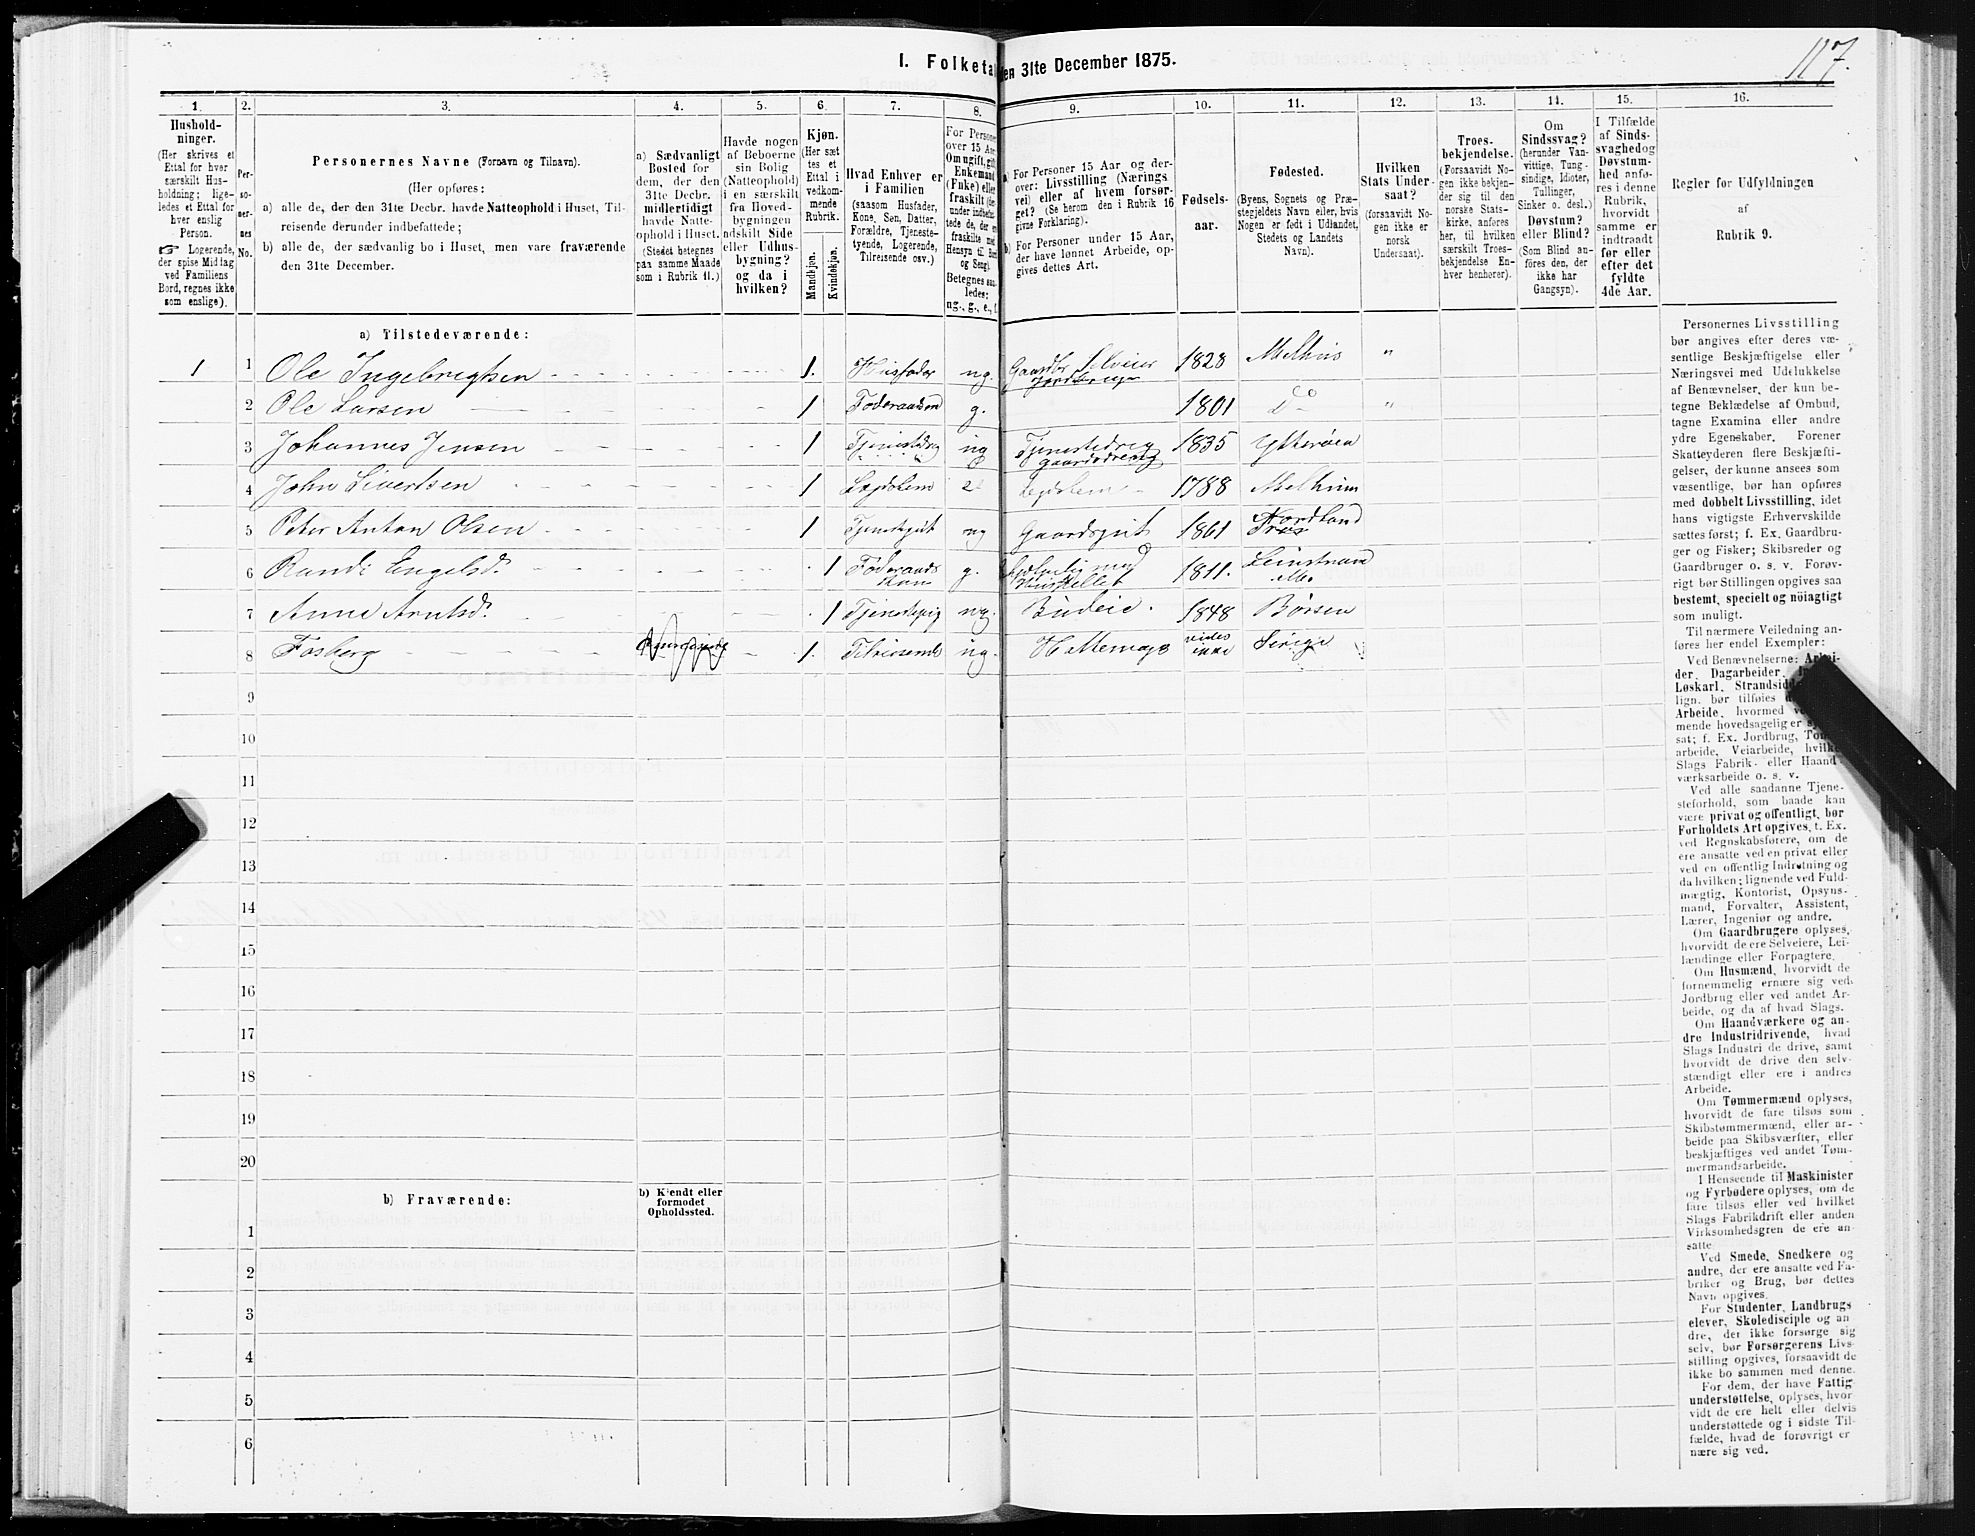 117.
I. Folketal
den 31te December 1875.
1. 2. 3. 4. 5. 6. 7. 8. 9. 10. 11. 12. 13. 14. 15. 16.
Hushold-
ninger.
(Her skrives et
Ettal for hver
særskilt Hus-
holdning; lige-
ledes et Ettal for
hver enslig
Person.
☞ Logerende,
der spise Middag
ved Familiens
Bord, regnes ikke
som enslige).
Per-
so-
ner-
nes
No.
Personernes Navne (Fornavn og Tilnavn).
(Her opføres:
a) alle de, der den 31te Decbr. havde Natteophold i Huset, Til-
reisende derunder indbefattede;
b) alle de, der sædvanlig bo i Huset, men vare fraværende
den 31te December.
a) Sædvanligt
Bosted for
dem, der den
31te Decbr.
midlertidigt
havde Natte-
ophold i Huset.
(Stedet betegnes
paa samme Maade
som i Rubrik 11.)
Havde nogen
af Beboerne
sin Bolig
(Natteophold)
i en særskilt
fra Hoved-
bygningen
adskilt Side
eller Udhus-
bygning?
og da i
hvilken?
Kjøn.
(Her sæt
tes et
Ettal i
vedkom-
mende
Rubrik.
Mandkjøn.
Kvindekjøn.
Hvad Enhver er
i Familien
(saasom Husfader,
Kone, Søn, Datter,
Forældre, Tjeneste-
tyende, Logerende,
Tilreisende osv.)
For Person
over 15 Aar
Om ugift, gift
Enkemand
(Fuke) eller
fraskilt
under indbefat-
tede de, der ere
fraskilte med
Hensyn til Bord
og Seng).
Betegnes saa-
ledes:
ug., g., e., f.
a) For Personer 15 Aar og der-
over: Livsstilling (Nærings
vei) eller af hvem forsør-
get? (Se herom den i Rubrik 16
givne Forklaring).
b) For Personer under 15 Aar,
der have lønnet Arbeide, op-
gives dettes Art.
Fødsels-
aar.
Fødested.
(Byens, Sognets og Præ-
stegjeldets Navn eller, hvis
Nogen er født i Udlandet,
Stedets og Landets
Navn).
Hvilken
Stats Under-
saat?
(forsaavidt No-
gen ikke er
norsk
Undersaat).
Troes-
bekjendelse.
(Forsaavidt No-
gen ikke bekjen-
der sig til den
norske Stats-
kirke, anføres
her, til hvilken
særskilt Troes-
bekjendelse En-
hver henhører).
Om
Sindssvag?
(herunder Van-
vittige, Tung-
sindige, Idioter,
Tullinger,
Sinker o. desl.)
Døvstum?
eller Blind?
(Som Blind an-
føres den, der
ikke har
Gangsyn).
I Tilfælde
af Sinds-
svaghed og
Døvstum-
hed anfø-
res i denne
Rubrik,
hvorvidt
samme er
indtraadt
før eller
efter det
fyldte
4de Aar.
Regler for Udfyldningen
af
Rubrik 9.
a) Tilstedeværende:
1 1 Ole Ingebrigtsen 1. Husfader ug. Gaardbr Selveier Jordbruger 1828 Melhus "
2 Ole Larsen 1 g. 1801 Do "
3 Johannes Jensen 1 ug Tjenestedreng Gaardsdreng 1835 Ytterøen
4 John Sivertsen 1 Lægdslem e Lægdslem 1788 Melhuus
5 Peter Anton Olsen 1 Tjenstgut ug Gaardsgut 1861 Nordland
6 Randi Engelsdr 1 Føderaads Kone g. 1811. Leinstrand
7 Anne Arntsdr 1 Tjenestepig ug. Budeie. 1848 Børsen
8 Fosberg 1. Tilreisende ug. vides ikke Sverige
9
10
11
12
13
14
15
16
17
18
19
20
b) Fraværende:
b) Kjendt eller
formodet
Opholdssted.
1
2
3
4
5
6
Personernes Livsstilling
bør angives efter deres væ-
sentlige Beskjæftigelse eller
Næringsvei med Udelukkelse
af Benævnelser, der kun be-
tegne Beklædelse af Ombud,
tagne Examina eller andre
ydre Egenskaber. Forener
Skatteyderen flere Beskjæfti-
gelser, der kunne ansees som
væsentlige, bør han opføres
med dobbelt Livsstilling, idet
hans vigtigste Erhvervskilde
sættes først; f. Ex. Gaardbru-
ger og Fisker; Skibsreder og
Gaardbruger o. s. v. Forøv-
rigt bør Stillingen opgives saa
bestemt, specielt og nöiagtigt
som muligt.
Til nærmere Veiledning an-
føres her endel Exempler:
Ved Benævnelserne: Arbei-
der, Dagarbeider,
Løskarl, Strandsidder
lign. bør tilføies
Arbeide, hvormed
mende hovedsagelig er
sat; f. Ex. Jordbrug,
arbeide, Veiarbeide, hvilke
Slags Fabrik- eller Haand-
værksarbeide o. s. v.
Ved alle saadanne Tjene-
steforhold, som baade kan
være privat og offentligt, bør
Forholdets Art opgives, t. Ex.
ved Regnskabsførere, om de
ere ansatte ved en privat eller
ved en offentlig Indretning og
da hvilken; lignende ved Fuld-
mægtig, Kontorist, Opsyns-
mand, Forvalter, Assistent,
Lærer, Ingeniør og andre.
Om Gaardbrugere oplyses,
hvorvidt de ere Selveiere, Lei-
lændinge eller Forpagtere.
Om Husmænd, hvorvidt de
fornemmelig ernære sig ved
Jordbrug eller ved andet Ar-
beide, og da af hvad Slags.
Om Haandværkere og an-
dre Industridrivende, hvad
Slags Industri de drive, samt
hvorvidt de drive den selv-
stændigt eller ere i andres
Arbeide.
Om Tømmermænd oplyses,
hvorvidt de fare tilsøs som
Skibstømmermænd, eller ar-
beide paa Skibsværfter, eller
beskjæftiges ved andet Tøm-
mermandsarbeide.
I Henseende til Maskinister
og Fyrbødere oplyses, om de
fare tilsøs eller ved hvilket
Slags Fabrikdrift eller anden
Virksomhedsgren de ere an-
satte.
Ved Smede, Snedkere og
andre, der ere ansatte ved Fa-
briker og Brug, bør dettes
Navn opgives.
For Studenter, Landbrugs
elever, Skoledisciple og an
dre, der ikke forsørge sig
selv, bør Forsørgerens Livs-
stilling opgives, forsaavidt de
ikke bo sammen med denne.
For dem, der have Fattig
understøttelse, oplyses, hvor
vidt de ere helt eller delvis
understøttede og i sidste Til-
fælde, hvad de forøvrigt er
nære sig ved.